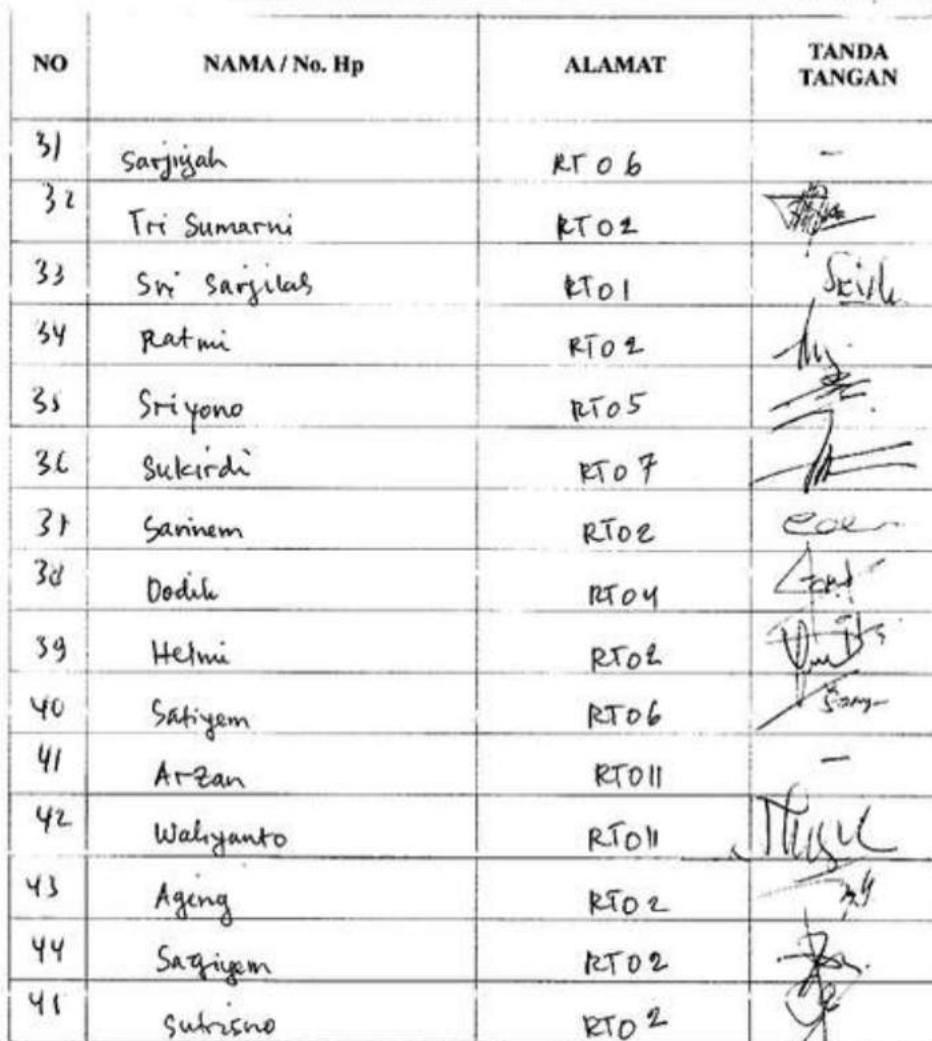 NO NAMA / No. Hp ALAMAT TANDA TANGAN
31 Sarjiyah RT 06 -
32 Tri Sumarni RT02
33 Sri Sarjilah RT01
34 Ratmi RT02
35 Sriyono RT05
36 Sukirdi RT07
37 Sarinem RT02
38 Dodik RT04
39 Helmi RT02
40 Satiyem RT06
41 Arzan RT011 -
42 Waliyanto RT011
43 Ageng RT02
44 Sagiyem RT02
45 Sutrisno RT02